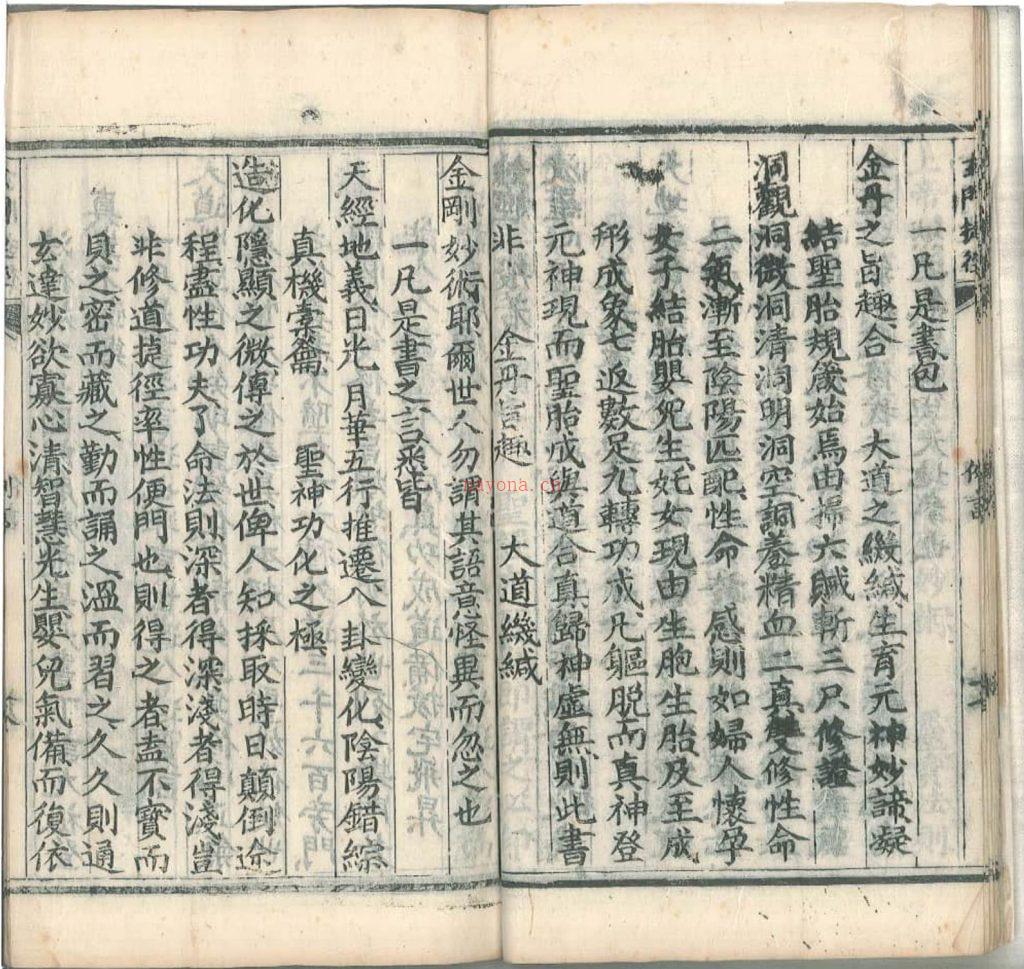 一凡是書包
金丹之旨趣合 大道之緘生育元神妙諦凝
結聖胎規歲始焉由掃六賊斬三尸修證
洞觀洞微洞清洞明洞空洞養精血二真雙修性命
二氣漸至陰陽匹配性命感則如婦人懷孕
女子結胎嬰兒生奼女現由生胞生胎及至成
形成象七返數足九轉功成凡軀脫而真神登
元神現而聖胎成與道合真歸神虛無則此書
非 金丹旨趣 大道緘
金剛妙術耶爾世人勿謂其語意怪異而忽之也
一凡是書之言悉皆
天經地義日光月華五行推遷八卦變化陰陽錯綜
真機橐籥 聖神功化之極
造化隱顯之微傳之於世俾人知採取時日顛倒途
程盡性功夫了命法則深者得深淺者得淺豈
非修道捷徑率性便門也則得之者盍不寶而
貝之密而藏之勤而誦之溫而習之久久則通
玄達妙欲寡心清智慧光生嬰兒氣備而復依
nayona.cn